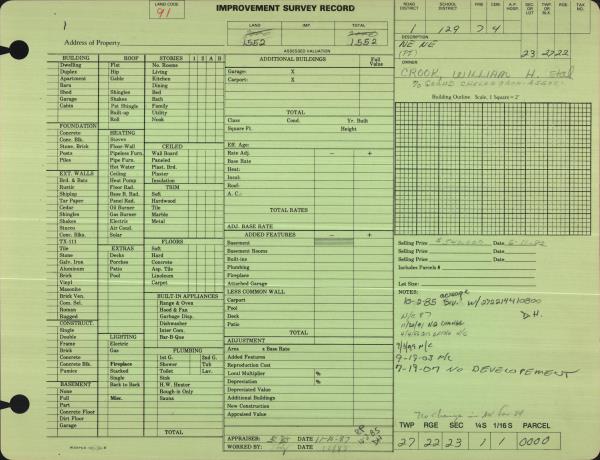 LAND CODE
91
IMPROVEMENT SURVEY RECORD
ROAD DISTRICT
SCHOOL DISTRICT
FIRE
CEM.
A.P. HOSP.
SEC. OR LOT
TWP. OR BLK.
RGE.
TAX NO.
1
129
7
4
LAND
IMP.
TOTAL
1552
1552
Address of Property
ASSESSED VALUATION
DESCRIPTION
NE NE
(77)
23 2722
OWNER
CROOK, WILLIAM H. etal
BUILDING
ROOF
STORIES
1 2 A B
Dwelling
Flat
No. Rooms
Duplex
Hip
Living
Apartment
Gable
Kitchen
Barn
Dining
Shed
Shingles
Bed
Garage
Shakes
Bath
Cabin
Pat Shingle
Family
Built-up
Utility
Roll
Nook
FOUNDATION
Concrete
HEATING
Conc. Blk.
Stoves
Stone, Brick
Floor-Wall
CEILED
Posts
Pipeless Furn.
Wall Board
Piles
Pipe Furn.
Paneled
Hot Water
Plast. Brd.
EXT. WALLS
Ceiling
Plaster
Brd. & Bats
Heat Pump
Insulation
Rustic
Floor Rad.
TRIM
Shiplap
Base B. Rad.
Soft
Tar Paper
Panel Rad.
Hardwood
Cedar
Oil Burner
Tile
Shingles
Gas Burner
Marble
Shakes
Electric
Metal
Stucco
Air Cond.
Conc. Blks.
Solar
TX-111
FLOORS
Tile
EXTRAS
Soft
Stone
Decks
Hard
Galv. Iron
Porches
Concrete
Aluminum
Patio
Asp. Tile
Brick
Pool
Linoleum
Vinyl
Carpet
Masonite
Brick Ven.
BUILT-IN APPLIANCES
Com. Sel.
Range & Oven
Roman
Hood & Fan
Rugged
Garbage Disp.
CONSTRUCT.
Dishwasher
Single
Inter Com.
Double
LIGHTING
Bar-B-Que
Frame
Electric
Brick
Gas
PLUMBING
Concrete
1st G.
2nd G.
Concrete Blk.
Fireplace
Shower
Tub
Pumice
Stacked
Toilet
Lav.
Single
Sink
BASEMENT
Back to Back
H.W. Heater
None
Rough-in Only
Full
Misc.
Sauna
Part
Concrete Floor
Dirt Floor
Garage
TOTAL
ADDITIONAL BUILDINGS
Full Value
Garage: X
Carport: X
TOTAL
Class
Cond.
Yr. Built
Square Ft.
Height
Eff. Age:
Rate Adj. — +
Base Rate
Heat:
Insul:
Roof:
A. C.
TOTAL RATES
ADJ. BASE RATE
ADDED FEATURES — +
Basement
Basement Rooms
Built-ins
Plumbing
Fireplace
Attached Garage
LESS COMMON WALL
Carport
Pool
Deck
Patio
TOTAL
ADJUSTMENT
Area x Base Rate
Added Features
Reproduction Cost
Local Multiplier %
Depreciation %
Depreciated Value
Additional Buildings
New Construction
Appraised Value
APPRAISER:
DATE 11-16-87
WORKED BY:
DATE
Building Outline Scale, 1 Square = 2'
Selling Price
Date
Selling Price
Date
Includes Parcels #
Lot Size:
NOTES:
10-2-85 acreage Devl. w/272214410800
N/C 87
D.H.
11/20/91 NO CHANGE
7/9/99 N/C
9-19-03 N/C
7-19-07 NO DEVELOPEMENT
TWP
RGE
SEC
¼S
1/16 S
PARCEL
27
22
23
1
1
0000